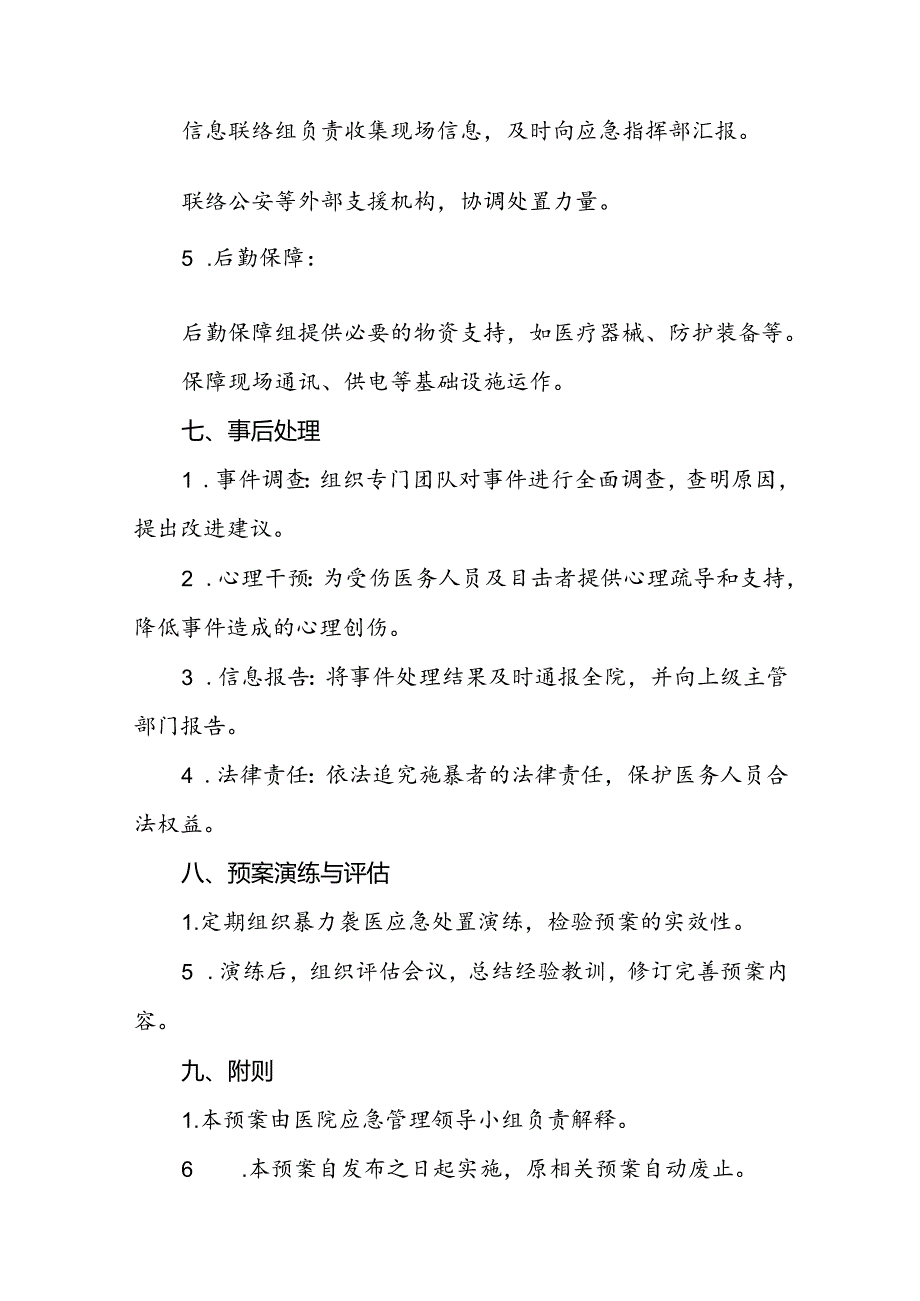 信息联络组负责收集现场信息，及时向应急指挥部汇报。
联络公安等外部支援机构，协调处置力量。
5 .后勤保障：
后勤保障组提供必要的物资支持，如医疗器械、防护装备等。
保障现场通讯、供电等基础设施运作。
七、事后处理
1 .事件调查：组织专门团队对事件进行全面调查，查明原因，
提出改进建议。
2 .心理干预：为受伤医务人员及目击者提供心理疏导和支持，
降低事件造成的心理创伤。
3 .信息报告：将事件处理结果及时通报全院，并向上级主管
部门报告。
4 .法律责任：依法追究施暴者的法律责任，保护医务人员合
法权益。
八、预案演练与评估
1.定期组织暴力袭医应急处置演练，检验预案的实效性。
5 .演练后，组织评估会议，总结经验教训，修订完善预案内
容。
九、附则
1.本预案由医院应急管理领导小组负责解释。
6 .本预案自发布之日起实施，原相关预案自动废止。